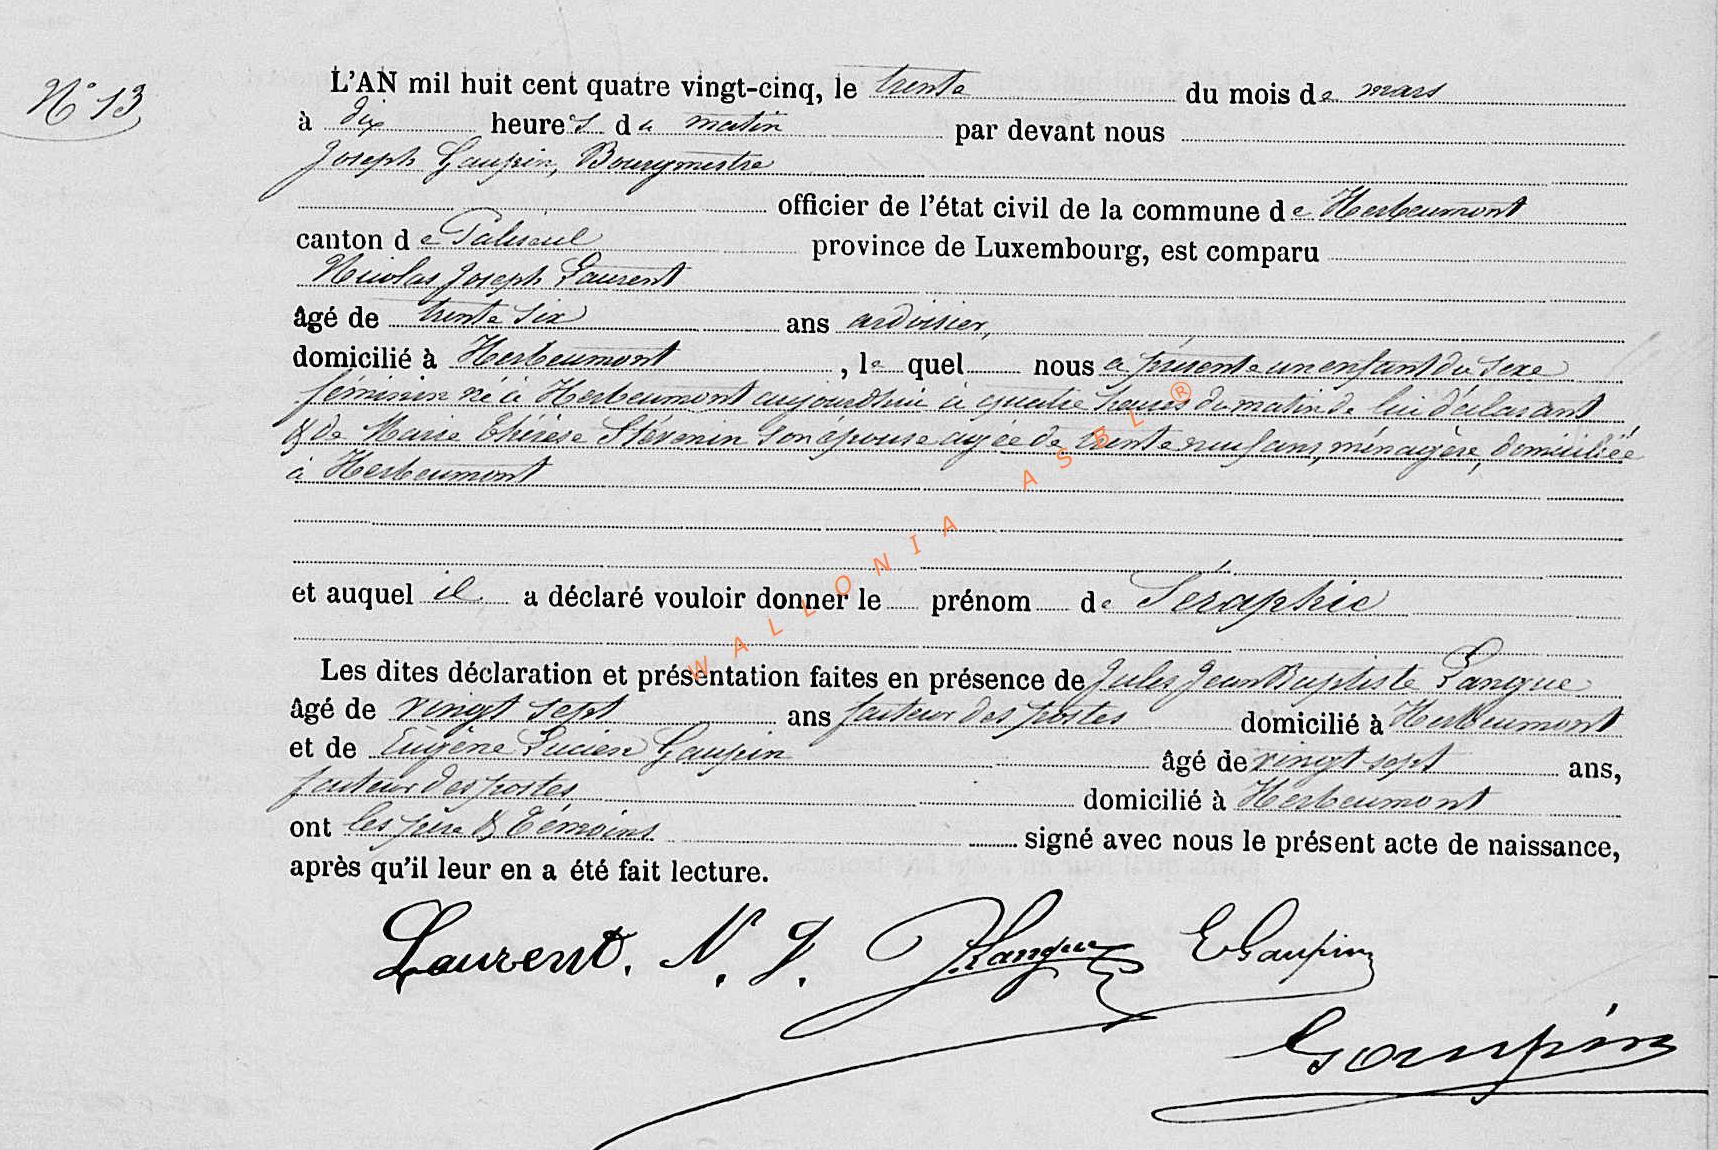 N° 13
L'AN mil huit cent quatre vingt-cinq, le trente du mois de mars
à dix heures du matin par devant nous
Joseph Gaupin, Bourgmestre
officier de l'état civil de la commune de Herbeumont
canton de Paliseul province de Luxembourg, est comparu
Nicolas Joseph Laurent
âgé de trente six ans ardoisier,
domicilié à Herbeumont, le quel nous a présenté un enfant du sexe
féminin né à Herbeumont aujourdhui à quatre heures du matin de lui déclarant
& de Marie Thérèse Stévenin son épouse agée de trente neuf ans, ménagère, domiciliée
à Herbeumont
et auquel il a déclaré vouloir donner le prénom de Séraphie
Les dites déclaration et présentation faites en présence de Jules Jean Baptiste Langue
âgé de vingt sept ans facteur des postes domicilié à Herbeumont
et de Eugène Lucien Gaupin âgé de vingt sept ans,
facteur des postes domicilié à Herbeumont
ont les père & témoins signé avec nous le présent acte de naissance,
après qu'il leur en a été fait lecture.
Laurent. N. J. J. Langue E Gaupin
Gaupin
WALLONIA ASBL ®